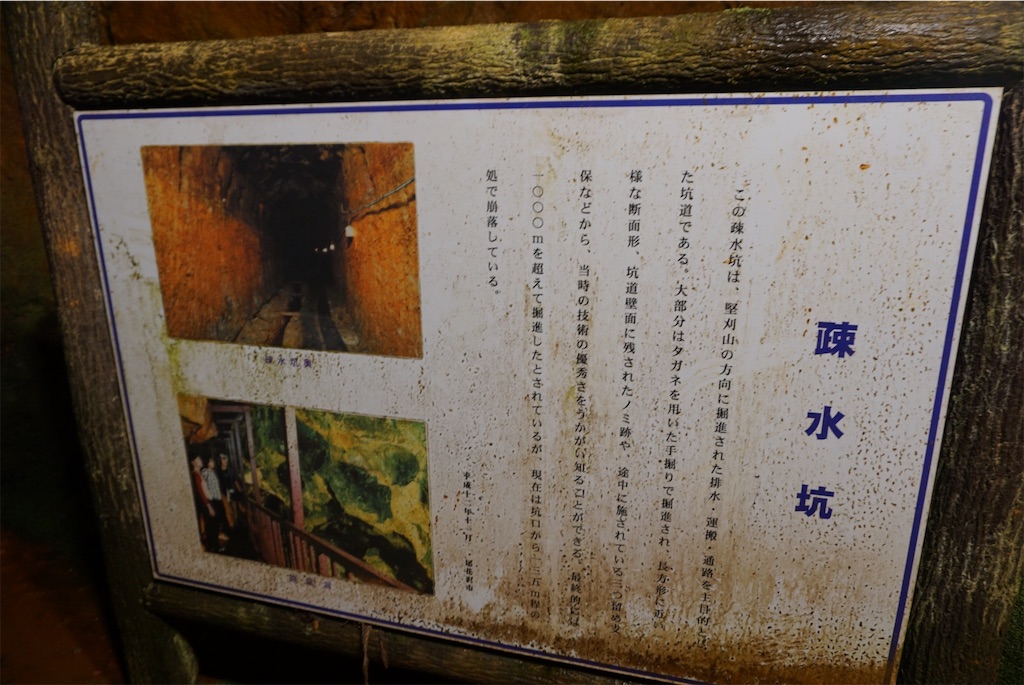 疎水坑
この疎水坑は、堅刈山の方向に掘進された排水・運搬・通路を主目的とし
た坑道である。大部分はタガネを用いた手掘りで掘進され、長方形に近い
様な断面形、坑道壁面に残されたノミ跡や、途中に施されている三つ留め
保などから、当時の技術の優秀さをうかがい知ることができる。最終的には
一〇〇〇mを超えて掘進したとされているが、現在は坑口から二三五m程の
処で崩落している。
平成十一年十二月 尾花沢市
疎水坑奥